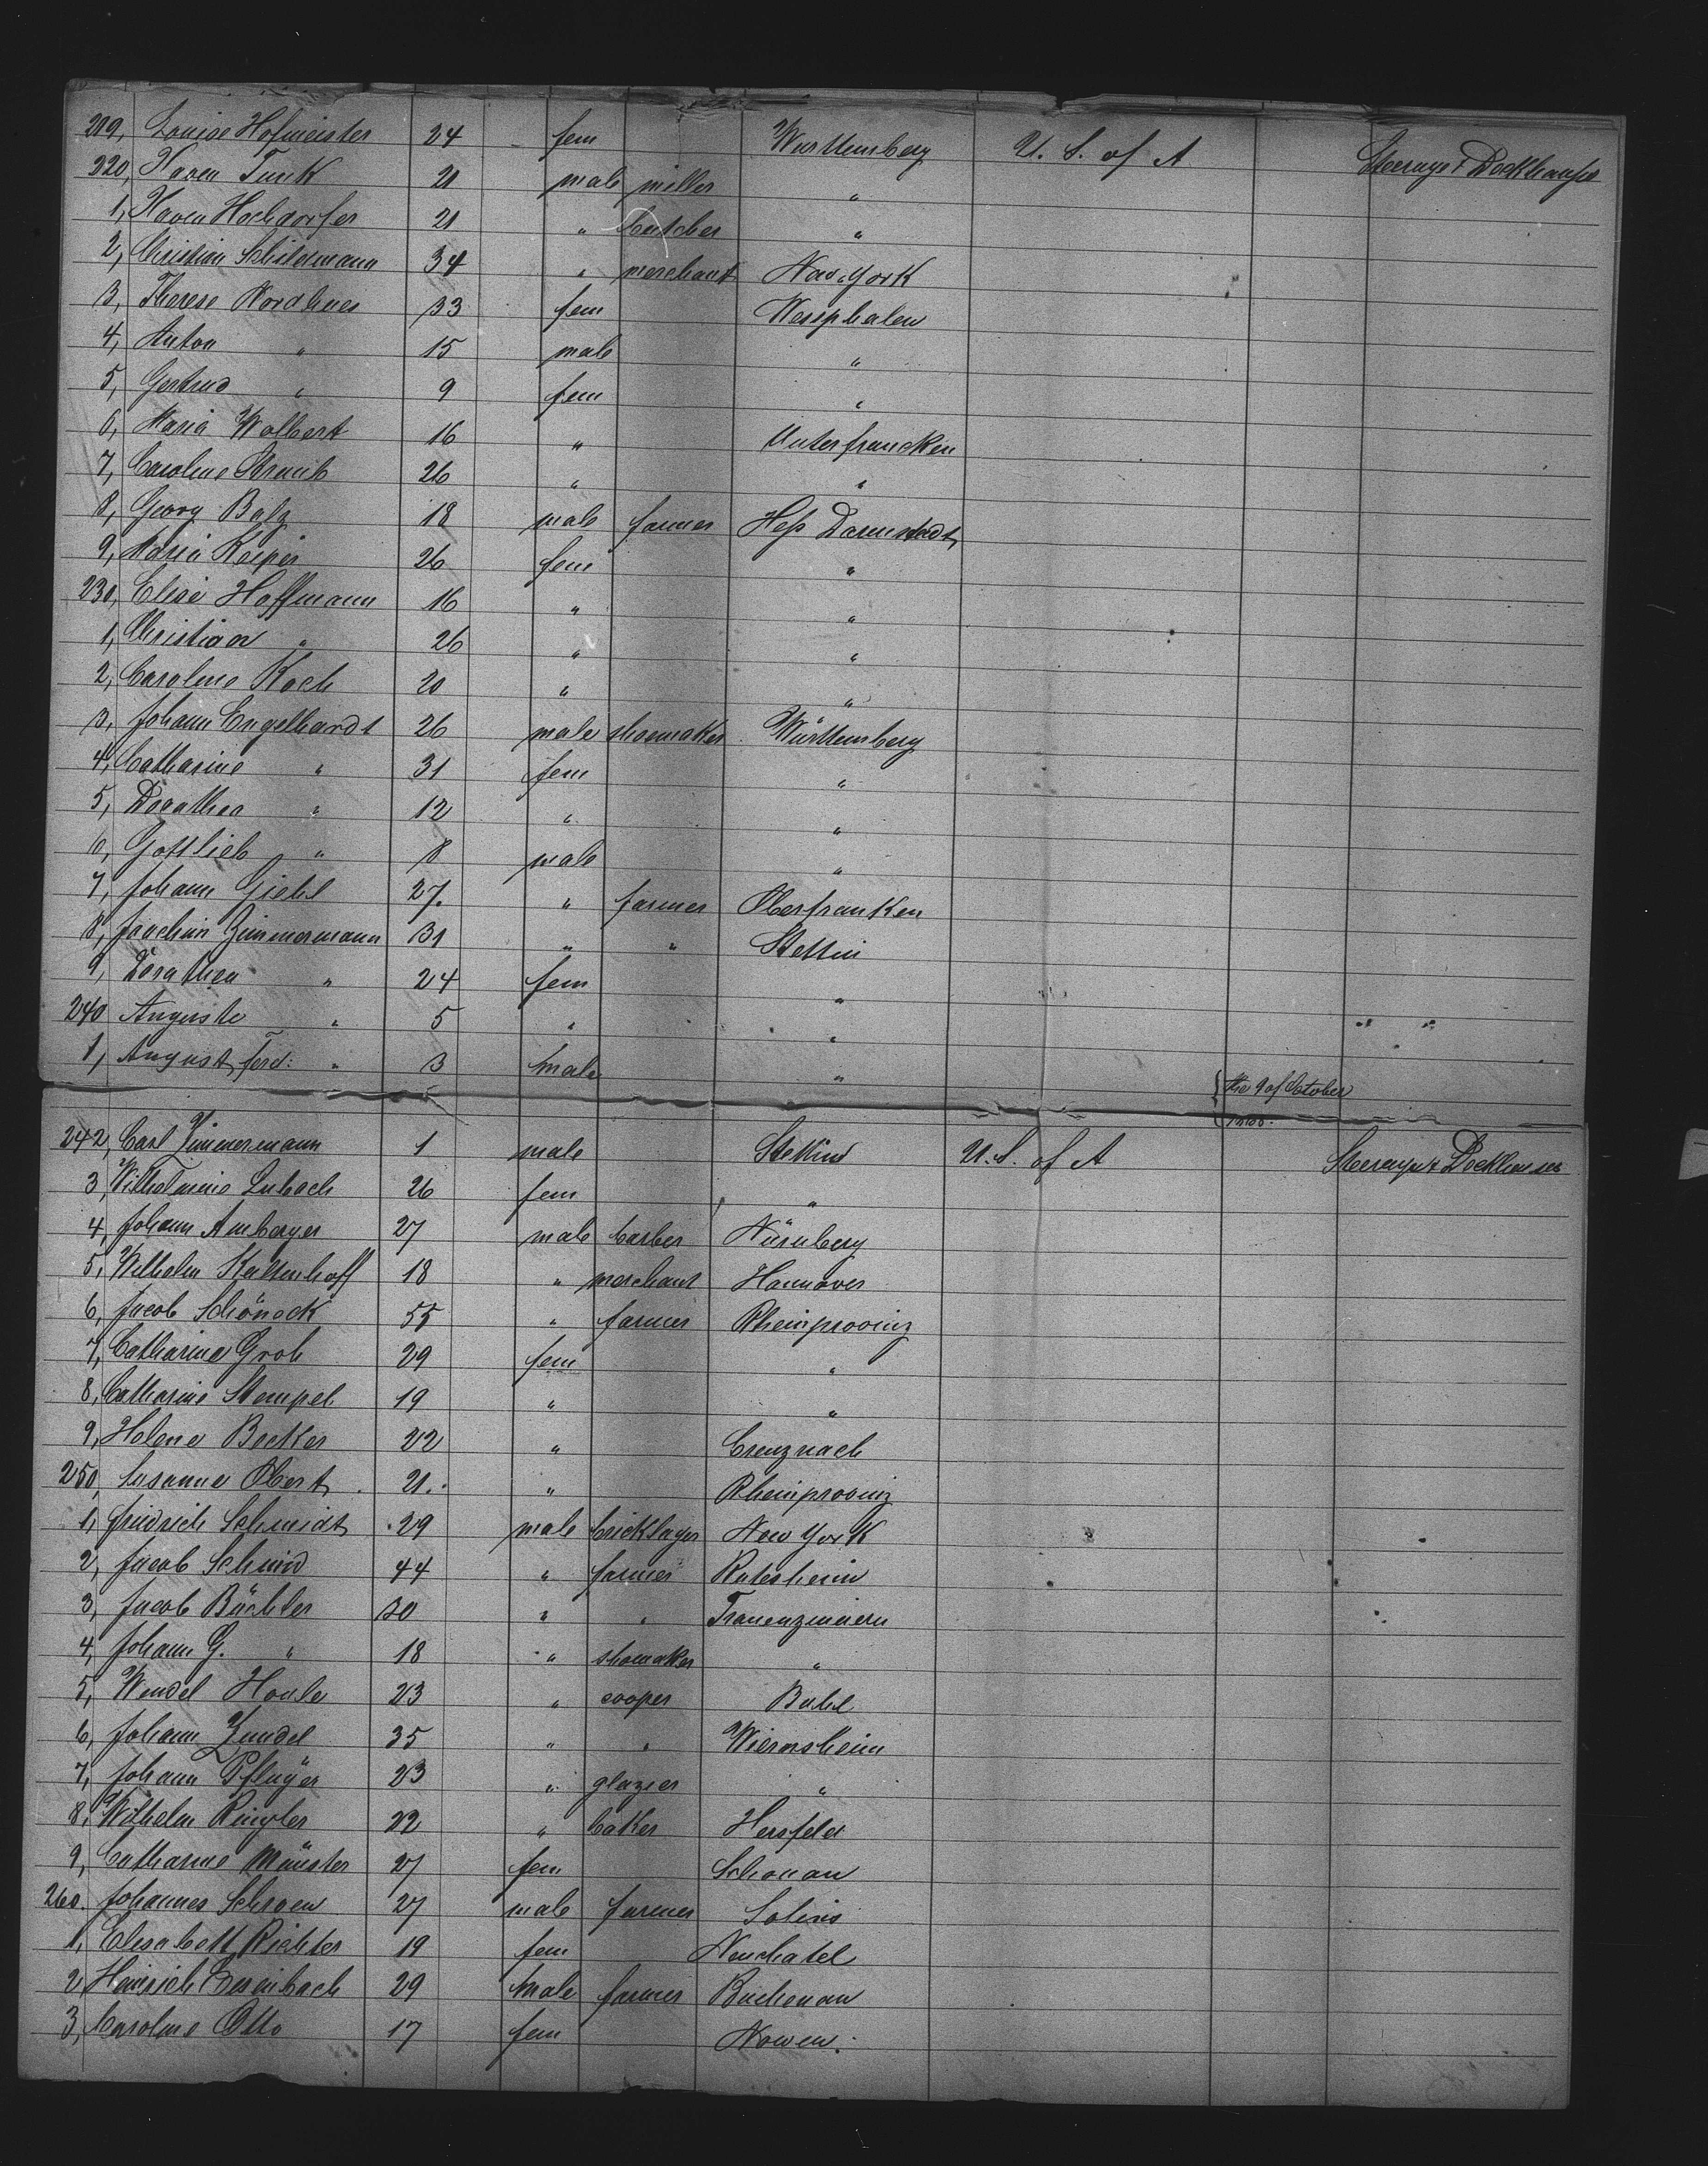 219, Louise Hofmeister 24 fem Württemberg U. S. of A Steerage & Deckhouse
220, Xaver Funk 21 male miller "
1, Xaver Hochdorfer 21 " butcher "
2, Christian Schiedermann 34 " merchant New York
3, Therese Nordhues 33 fem Westphalen
4, Anton " 15 male "
5, Gertrud " 9 fem "
6, Maria Wolbert 16 " Unterfrancken
7, Caroline Straub 26 " "
8, Georg Balz 18 male farmer Heß Darmstadt
9, Maria Kasper 26 fem "
230, Elise Hoffmann 16 " "
1, Christian " 26 " "
2, Caroline Koch 20 " "
3, Johann Engelhardt 26 male shoemaker Württemberg
4, Catharine " 31 fem "
5, Dorathea " 12 " "
6, Gottlieb " 8 male "
7, Johann Giehl 27. " farmer Oberfranken
8, Joachim Zimmermann 31 " " Stettin
9, Dorathea " 24 fem "
240 Auguste " 5 " " " "
1, August Ferd: " 3 male "
the 9 of October
242, Carl Zimmermann 1 male Stettin U. S. of A Steerage & Deckhouse
3, Wilhelmine Lubach 26 fem "
4, Johann Amberger 27 male barber Nürnberg
5, Wilhelm Kattenhoff 18 " merchant Hannover
6, Jacob Schöneck 55 " farmer Rheinprovinz
7, Catharina Groh 29 fem "
8, Catharine Stempel 19 " "
9, Helene Becker 22 " Creuznach
250, Susanne Obert 21. " Rheinprovinz
1, Friedrich Schmidt 29 male bricklayer New York
2, Jacob Schmid 44 " farmer Rutesheim
3, Jacob Büchler 30 " " Frauenzimmern
4, Johann G. " 18 " shomaker "
5, Wendel 23 " cooper Buhl
6, Johann Zundel 35 " " Wiernsheim
7, Johann Pflüger 23 " glazier "
8, Wilhelm Ringler 22 " baker Hersfeld
9, Catharine Münster 27 fem Schonau
260. Johannes Schroen 27 male farmer
1, Elisabeth Richter 19 fem Neuchatel
2, Heinrich 29 male farmer Buchenau
3, Caroline Otto 17 fem